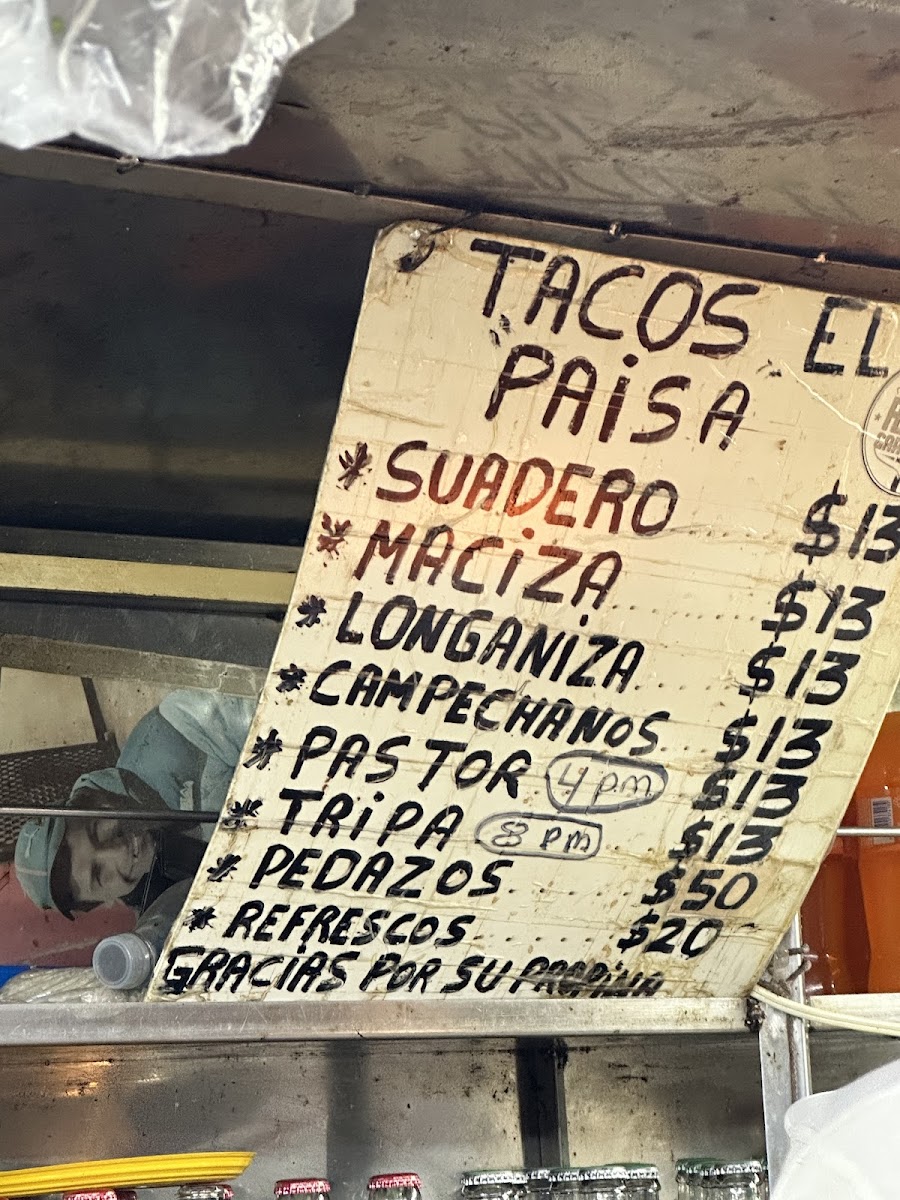 TACOS EL
PAiSA
* SUADERO $13
* MACiZA........ $13
* LONGANiZA..... $13
* CAMPECHANOS.. $13
* PASTOR 4 p.m $13
* TRiPA 8 PM $13
* PEDAZOS..... $50
* REFRESCOS..... $20
GRACiAS POR SU PROPiNA